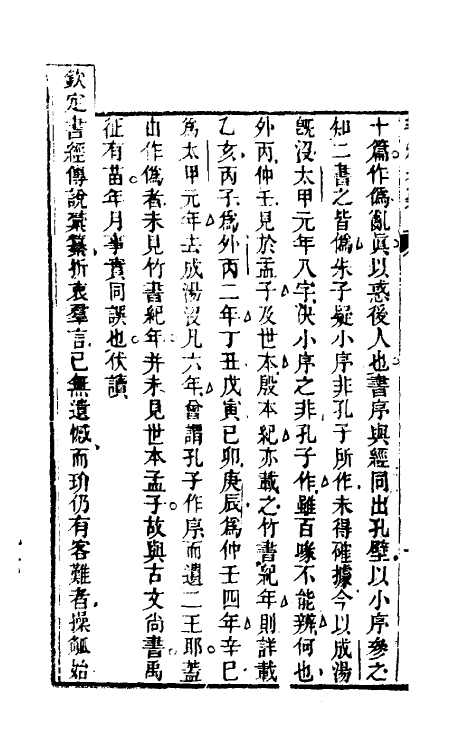 十篇作僞亂眞以惑後人也書序與經同出孔壁以小序參之
知二書之皆僞朱子疑小序非孔子所作未得確據今以成湯
旣沒太甲元年八字決小序之非孔子作雖百喙不能辨何也
外丙仲壬見於孟子及世本殷本紀亦載之竹書紀年則詳載
乙亥丙子爲外丙二年丁丑戊寅己卯庚辰爲仲壬四年辛巳
爲太甲元年去成湯沒凡六年曾謂孔子作序而遺二王耶蓋
由作僞者未見竹書紀年并未見世本孟子故與古文尚書禹
征有苗年月事實同誤也伏讀
欽定書經傳說彙纂折衷羣言已無遺憾而功仍有客難者操觚始